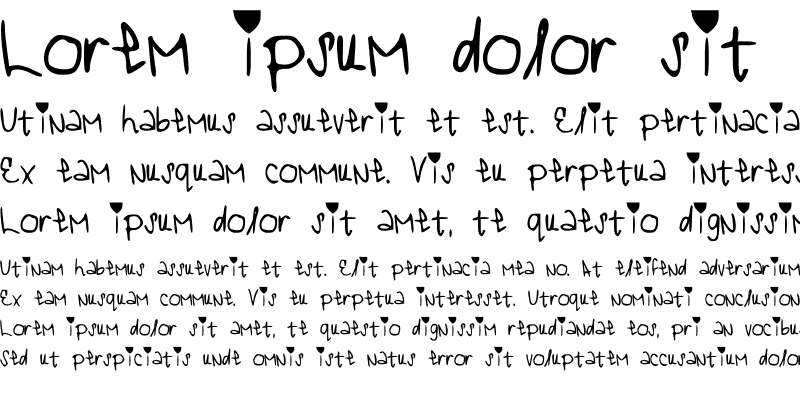 Lorem ipsum dolor sit
Utinam habemus assueverit et est. Elit pertinacia
Ex eam nusquam commune. Vis eu perpetua interess
Lorem ipsum dolor sit amet, te quaestio dignissim
Utinam habemus assueverit et est. Elit pertinacia mea no. At eleifend adversarium
Ex eam nusquam commune. Vis eu perpetua interesset. Utroque nominati conclusion
Lorem ipsum dolor sit amet, te quaestio dignissim repudiandae eos, pri an vocibu
Sed ut perspiciatis unde omnis iste natus error sit voluptatem accusantium dolor